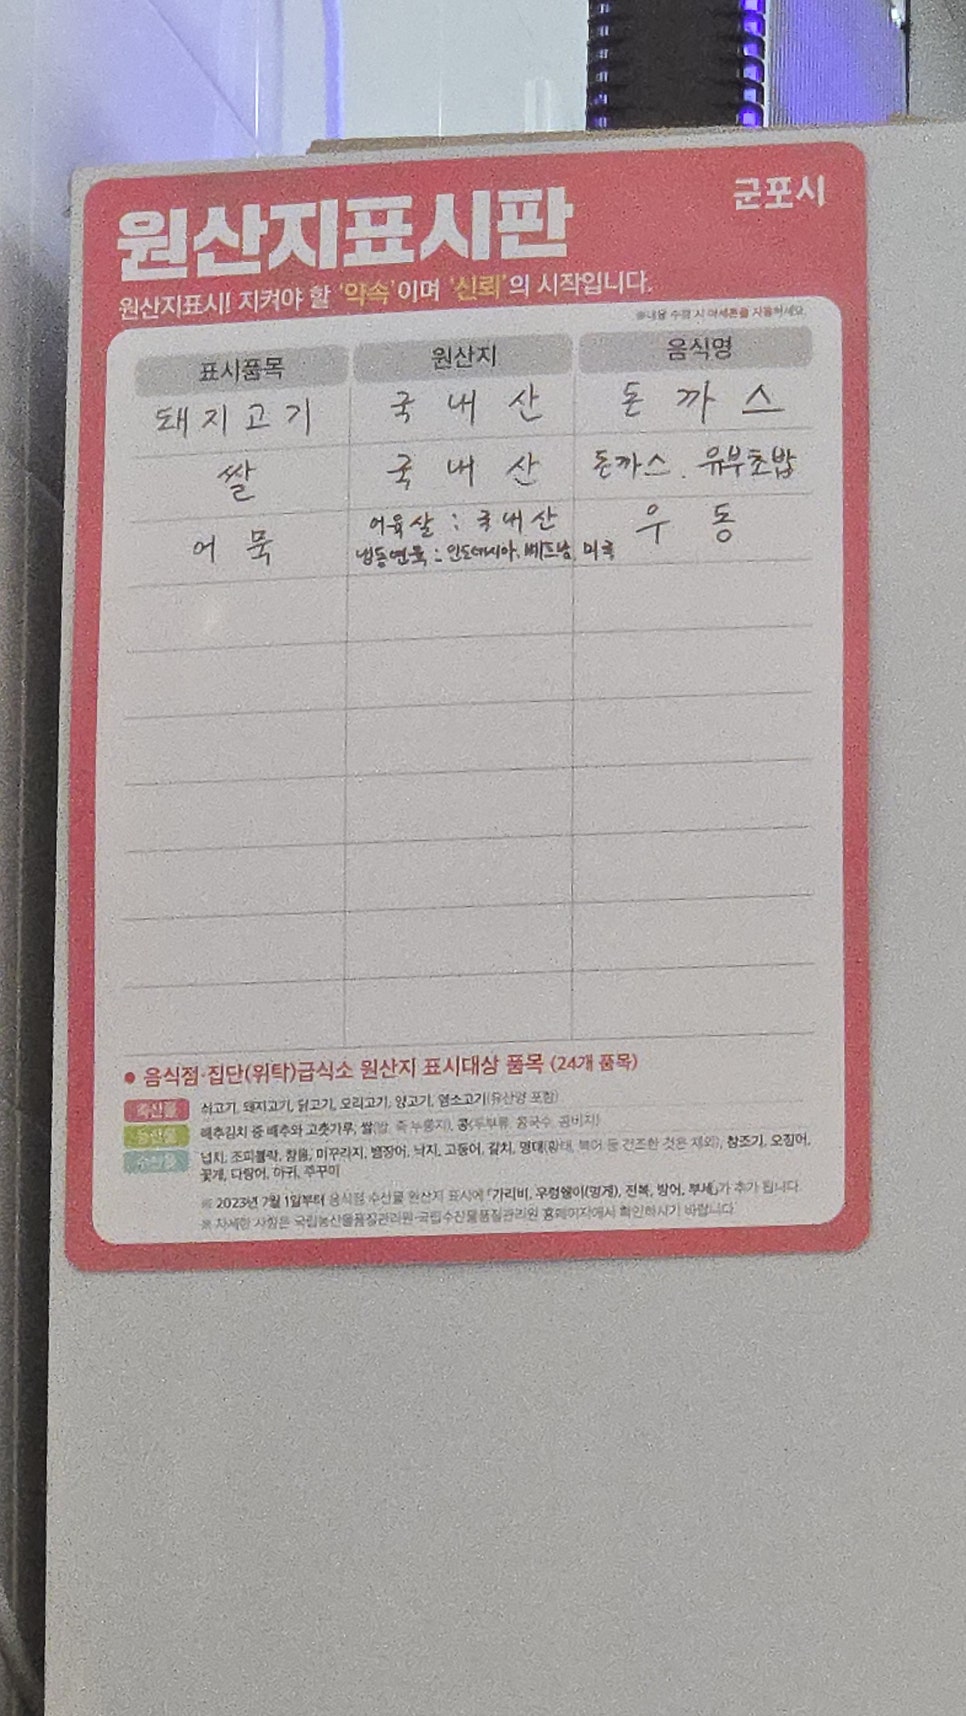 원산지표시판
군포시
원산지표시! 지켜야 할 '약속'이며 '신뢰'의 시작입니다.
※내용 수정 시 아세톤을 사용하세요.
표시품목 원산지 음식명
돼지고기 국내산 돈까스
쌀 국내산 돈까스. 유부초밥
어묵 어육살 : 국내산 우동
냉동연육 : 인도네시아, 베트남, 미국
● 음식점·집단(위탁)급식소 원산지 표시대상 품목 (24개 품목)
축산물 쇠고기, 돼지고기, 닭고기, 오리고기, 양고기, 염소고기(유산양 포함)
농산물 배추김치 중 배추와 고춧가루, 쌀(밥, 죽, 누룽지), 콩(두부류, 콩국수, 콩비지)
수산물 넙치, 조피볼락, 참돔, 미꾸라지, 뱀장어, 낙지, 고등어, 갈치, 명태(황태, 북어 등 건조한 것은 제외), 참조기, 오징어,
꽃게, 다랑어, 아귀, 주꾸미
※ 2023년 7월 1일부터 음식점 수산물 원산지 표시에 「가리비, 우렁쉥이(멍게), 전복, 방어, 부세」가 추가 됩니다.
※ 자세한 사항은 국립농산물품질관리원·국립수산물품질관리원 홈페이지에서 확인하시기 바랍니다.